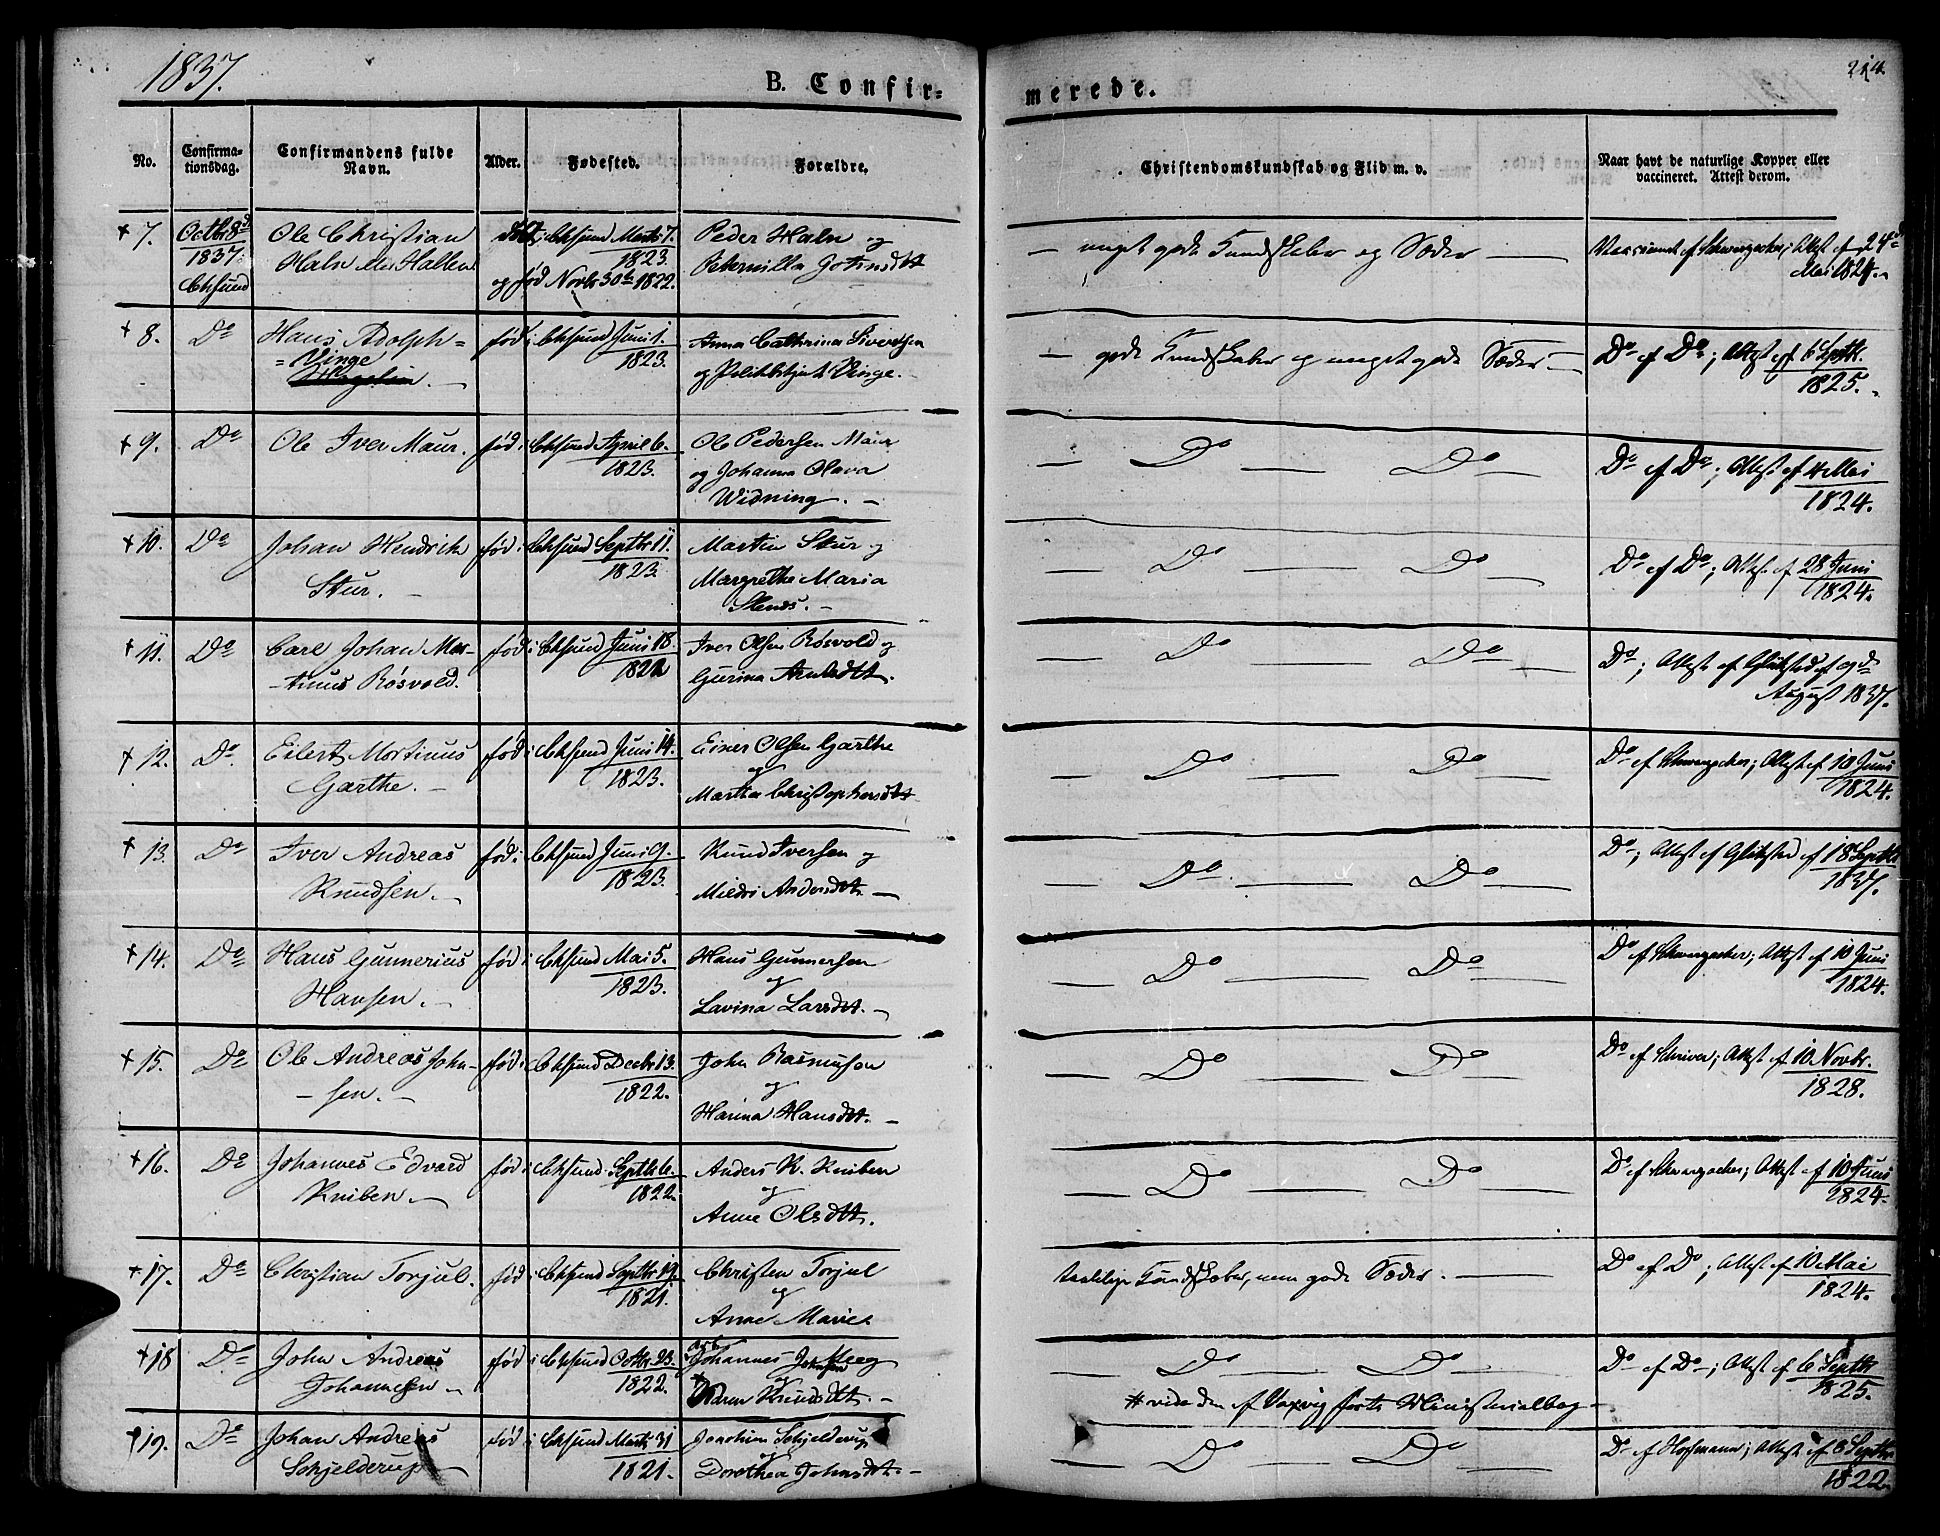 1837.
B. Confir-
merede.
214
No.
Confirma-
tionsdag.
Confirmandens fulde
Navn.
Alder.
Fødested.
Forældre.
Christendomskundskab og Flid m. v.
Naar havt de naturlige Kopper eller
vaccineret. Attest derom.
+ 7.
Octbr 8d
1837.
Chsund
Ole Christian
Hals
døbt i Chsund Marts 7.
1823.
og fød Novbr 30te 1822.
Peder Hals og
Peternilla
— meget gode Kundskaber og Sæder —
Vaccineret af Schwenzecher; Attest af 24de
Mai 1824.
+ 8.
Do
Hans Adolph
= Vinge
fød i Chsund Juni 1.
1823.
Anna Cathrina Sivertsen
og Politibetjent Vinge.
— gode Kundskaber og meget gode Sæder —
Do af Do; Attest af 6 Septbr.
1825.
+ 9.
Do
Ole Iver Maur.
fød i Chsund April 6.
1823.
Ole Pedersen Maur
og Johanna Olava
Widning. —
— Do — Do —
Do af Do; Attest af 4 Mai
1824.
+ 10.
Do
Johan Hendrik
Stur. —
fød i Chsund Septbr 11.
1823.
Martin Stur og
Margrethe Maria
— Do — Do —
Do af Do; Attest af 28 Juni
1824.
+ 11.
Do
Carl Johan Mar-
-tinus Rösvold.
fød i Chsund Juni 18.
1822
Iver Olsen Rösvold og
Gurina
— Do — Do —
Do; Attest af
August 1837.
+ 12.
Do.
Eilert Mortinus
Garthe. —
fød i Chsund Juni 14.
1823.
Einer Olsen Garthe
og
Martha Christophersdtt
— Do — Do
Do af Schwenzecher; Attest af 10 Juni
1824.
+ 13.
Do
Iver Andreas
Knudsen. —
fød i Chsund Juni 9.
1823.
Knud Iversen og
Andersdtt. —
— Do — Do —
Do; Attest af af 18 Septbr
1837.
+ 14.
Do
Hans Gunnerius
Hansen. —
fød i Chsund Mai 5.
1823.
Hans Gunnersen
og
Lavina Larsdtt. —
— Do — Do —
Do af Schwenzecher; Attest af 10 Juni
1824.
+ 15.
Do
Ole Andreas John-
- sen. —
fød i Chsund Decbr 13.
1822.
John Rasmusen
og
Harina Hansdtt. —
— Do — Do —
Do af Schriver; Attest af 10 Novbr.
1828.
+ 16.
Do
Johannes Edvard
Kniben. —
fød i Chsund Septb 6.
1822.
Anders K. Kniben
og
Anne Olsdtt.
— Do — Do —
Do af Schwenzecher; Attest af 10 Juni
1824.
+ 17.
Do
Christian Torjul.
fød i Chsund Septbr 19.
1821.
Christen Torjul
og
Anne Marie
taalelige Kundskaber, men gode Sæder. —
Do af Do; Attest af 10 Mai
1824.
+ 18
Do
John Andreas
Johannesen —
fød i Chsund Octbr. 23.
1822.
Johannes
og
Karen Knudsdtt. —
— Do — Do —
# vide den af Vaxvig førte Ministerialbog —
Do af Do —; Attest af 6 Septbr
1825.
19.
Do
Johan Andreas
Schjelderup —
fød i Chsund Marts 31
1821.
Joachim Schjelderup
og
Dorothea Johnsdtt. —
— Do — Do —
Do af Hofmann; Attest af 8 Septbr.
1822.